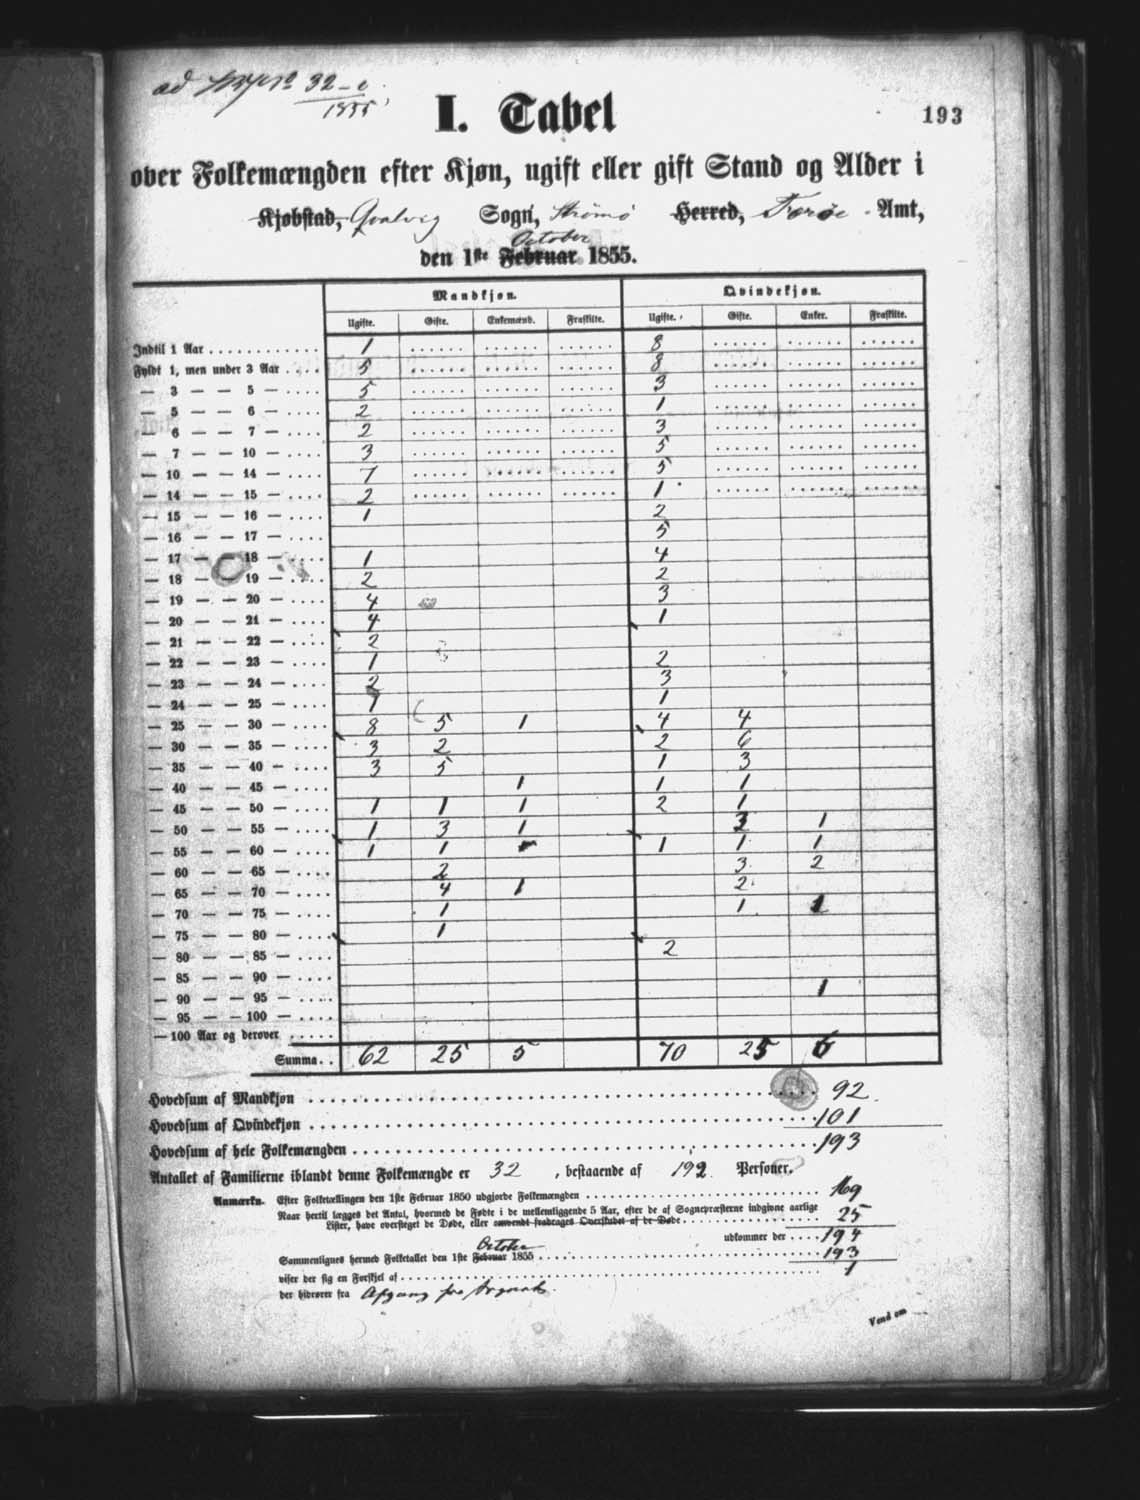 ad 32-c
1855
193
I. Tabel
over Folkemængden efter Kjøn, ugift eller gift Stand og Alder i
Kjøbstad, Qvalvig Sogn, Strømø Herred, Færøe Amt,
October
den 1ste Februar 1855.
Mandkjøn. Qvindekjøn.
Ugifte. Gifte. Enkemænd. Fraskilte. Ugifte. Gifte. Enker. Fraskilte.
Indtil 1 Aar 1 8
Fyldt 1, men under 3 Aar 5 8
— 3 — — 5 — 5 3
— 5 — — 6 — 2 1
— 6 — — 7 — 2 3
— 7 — — 10 — 3 5
— 10 — — 14 — 7 5
— 14 — — 15 — 2 1
— 15 — — 16 — 1 2
— 16 — — 17 — 5
— 17 — — 18 — 1 4
— 18 — — 19 — 2 2
— 19 — — 20 — 4 3
— 20 — — 21 — 4 1
— 21 — — 22 — 2
— 22 — — 23 — 1 2
— 23 — — 24 — 2 3
— 24 — — 25 — 1 1
— 25 — — 30 — 8 5 1 4 4
— 30 — — 35 — 3 2 2 6
— 35 — — 40 — 3 5 1 3
— 40 — — 45 — 1 1 1
— 45 — — 50 — 1 1 1 2 1
— 50 — — 55 — 1 3 1 3 1
— 55 — — 60 — 1 1 1 1 1
— 60 — — 65 — 2 3 2
— 65 — — 70 — 4 1 2
— 70 — — 75 — 1 1 1
— 75 — — 80 — 1
— 80 — — 85 — 2
— 85 — — 90 —
— 90 — — 95 — 1
— 95 — — 100 —
— 100 Aar og derover
Summa. . 62 25 5 70 25 6
Hovedsum af Mandkjøn 92
Hovedsum af Qvindekjøn 101
Hovedsum af hele Folkemængden 193
Antallet af Familierne iblandt denne Folkemængde er 32, bestaaende af 192 Personer.
Anmærkn. Efter Folketællingen den 1ste Februar 1850 udgjorde Folkemængden 169
Naar hertil lægges det Antal, hvormed de Fødte i de mellemliggende 5 Aar, efter de af Sognepræsterne indgivne aarlige
Lister, have oversteget de Døde, eller omvendt fradrages Overskudet af de Døde 25
udkommer der 194
October
Sammenlignes hermed Folketallet den 1ste Februar 1855 193
viser der sig en Forskjel af 1
der hidrører fra Afgang fra Sognet.
Vend om